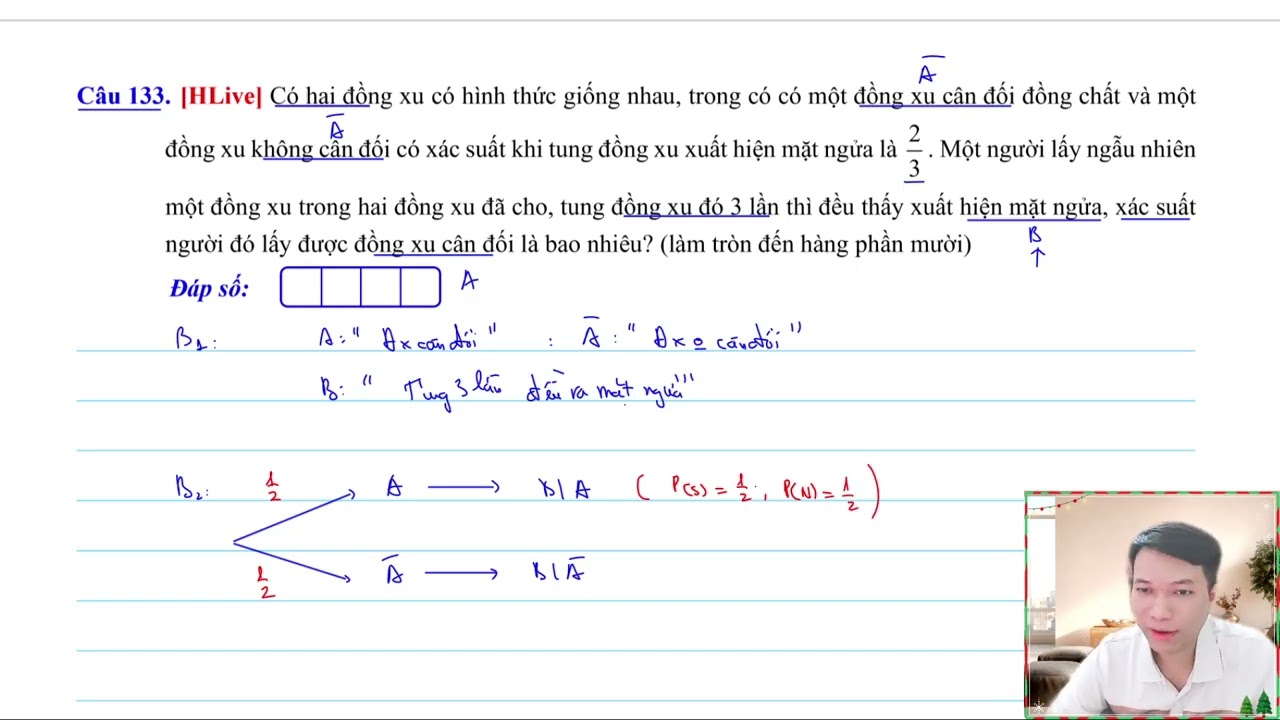 A̅
Câu 133. [HLive] Có hai đồng xu có hình thức giống nhau, trong có có một đồng xu cân đối đồng chất và một
A̅
đồng xu không cân đối có xác suất khi tung đồng xu xuất hiện mặt ngửa là 2/3. Một người lấy ngẫu nhiên
một đồng xu trong hai đồng xu đã cho, tung đồng xu đó 3 lần thì đều thấy xuất hiện mặt ngửa, xác suất
người đó lấy được đồng xu cân đối là bao nhiêu? (làm tròn đến hàng phần mười)
B ↑
Đáp số: A
B₁: A: " Đx cân đối " : A̅ : " Đx o cân đối "
B: " Tung 3 lần đều ra mặt ngửa "
B₂: 1/2 A → B | A ( P(S) = 1/2, P(N) = 1/2 )
1/2 A̅ → B | A̅